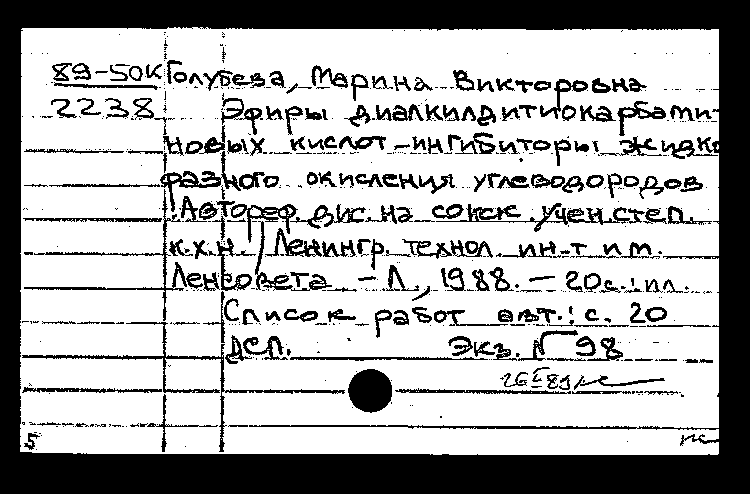 89-50к Голубева, Марина Викторовна
2238 Эфиры диалкилдитиокарбами-
новых кислот-ингибиторы жидко
фазного окисления углеводородов
: Автореф. дис. на соиск. учен. степ.
к.х.н. / Ленингр. технол. ин-т им.
Ленсовета. - Л., 1988. - 20с.: ил.
Список работ авт.: с. 20
ДСП. Экз. № 98
5